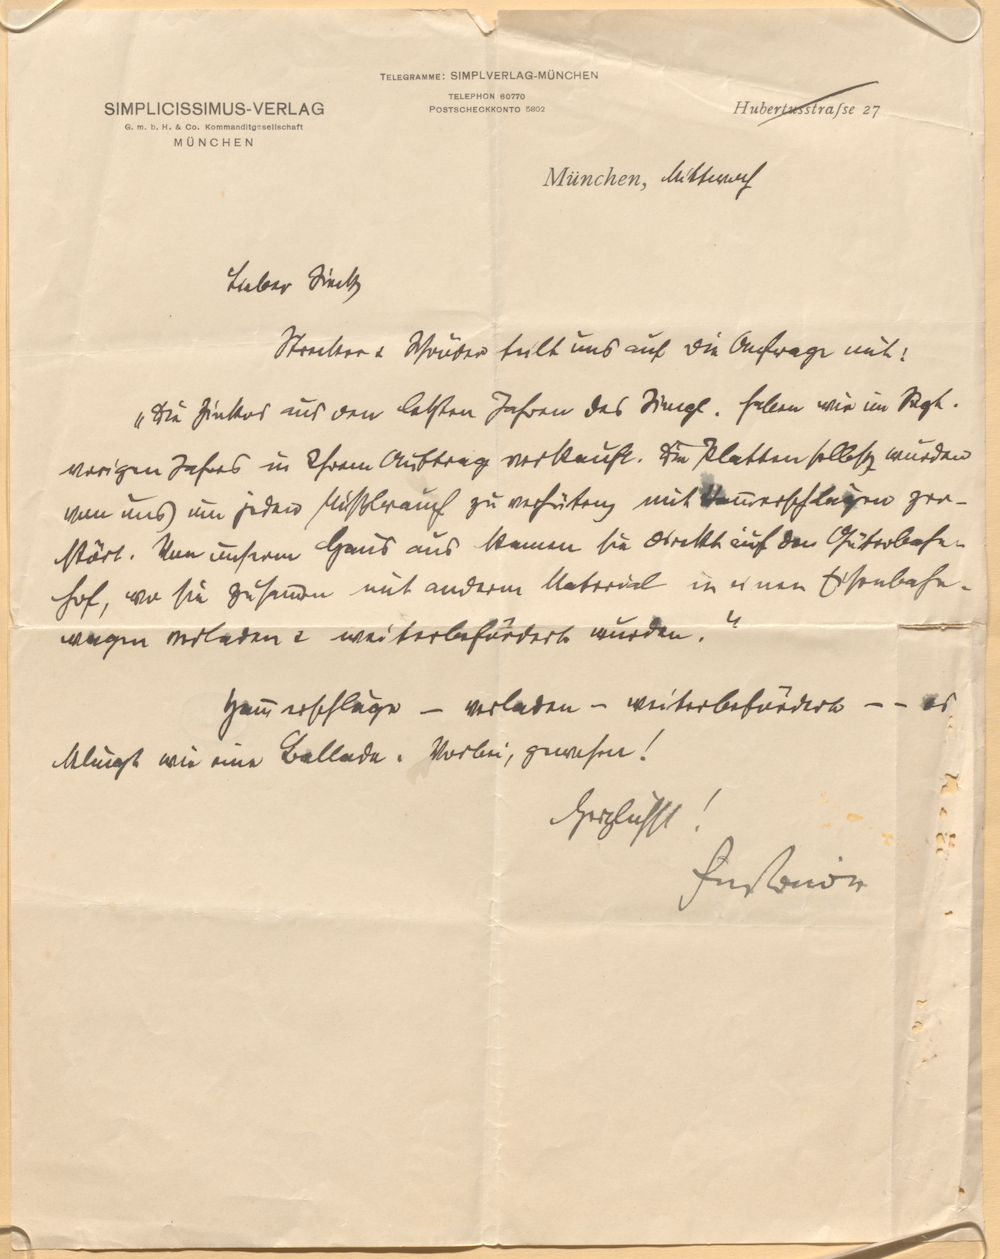 TELEGRAMME: SIMPLVERLAG-MÜNCHEN
TELEPHON 60770
POSTSCHECKKONTO 5802
SIMPLICISSIMUS-VERLAG
G. m. b. H. & Co. Kommanditgesellschaft
MÜNCHEN
Hubertusstraße 27
München, Mittwoch
Lieber
Strecker & Schröder teilt uns auf die Anfrage mit:
„Die Zinkos aus den letzten Jahren des Simpl. haben wir im Sept.
vorigen Jahres in Ihrem Auftrag verkauft. Die Platten selbst wurden
von uns, um jeden Missbrauch zu verhüten, mit Hammerschlägen zer-
stört. Von unserm Haus aus kamen sie direkt auf den Güterbahn-
hof, wo sie zusammen mit anderm Material in einen Eisenbahn-
wagen verladen & weiterbefördert wurden."
Hammerschläge – verladen – weiterbefördert – – es
klingt wie eine Ballade. Vorbei, gewesen!
Herzlichst!